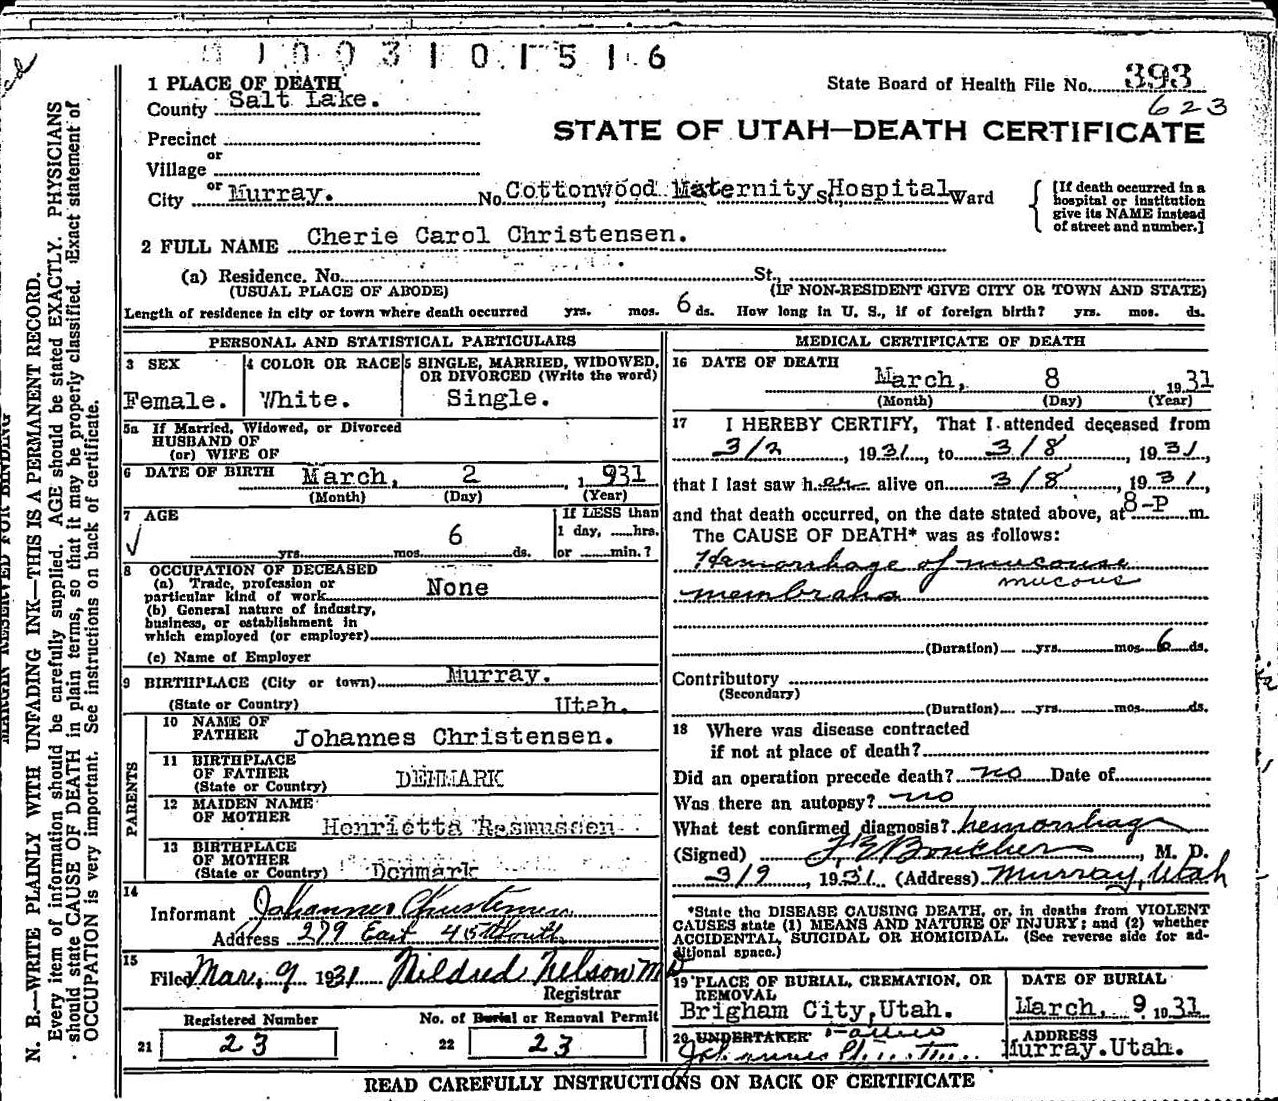 01003101516
1 PLACE OF DEATH
State Board of Health File No. 393
County Salt Lake.
623
STATE OF UTAH—DEATH CERTIFICATE
Precinct
or
Village
or
City Murray. No. Cottonwood Maternity St., Hospital Ward
[If death occurred in a hospital or institution give its NAME instead of street and number.]
2 FULL NAME Cherie Carol Christensen.
(a) Residence. No. St.,
(USUAL PLACE OF ABODE) (IF NON-RESIDENT GIVE CITY OR TOWN AND STATE)
Length of residence in city or town where death occurred yrs. mos. 6 ds. How long in U. S., if of foreign birth? yrs. mos. ds.
PERSONAL AND STATISTICAL PARTICULARS
3 SEX
Female.
4 COLOR OR RACE
White.
5 SINGLE, MARRIED, WIDOWED,
OR DIVORCED (Write the word)
Single.
5a If Married, Widowed, or Divorced
HUSBAND OF
(or) WIFE OF
6 DATE OF BIRTH March, 2, 1931
(Month) (Day) (Year)
7 AGE
6
yrs. mos. ds.
If LESS than
1 day, hrs.
or min.?
8 OCCUPATION OF DECEASED
(a) Trade, profession or
particular kind of work None
(b) General nature of industry,
business, or establishment in
which employed (or employer)
(c) Name of Employer
9 BIRTHPLACE (City or town) Murray.
(State or Country) Utah.
PARENTS
10 NAME OF
FATHER Johannes Christensen.
11 BIRTHPLACE
OF FATHER
(State or Country) DENMARK
12 MAIDEN NAME
OF MOTHER Henrietta Rasmussen
13 BIRTHPLACE
OF MOTHER
(State or Country) Denmark
14
Informant Johannes Christensen
Address 279 East 45th South
15
Filed Mar. 9 1931 Mildred Nelson MD
Registrar
Registered Number
21 23
No. of Burial or Removal Permit
22 23
MEDICAL CERTIFICATE OF DEATH
16 DATE OF DEATH
March, 8 1931
(Month) (Day) (Year)
17 I HEREBY CERTIFY, That I attended deceased from
3/2, 1931, to 3/8, 1931,
that I last saw her alive on 3/8, 1931,
and that death occurred, on the date stated above, at 8-P m.
The CAUSE OF DEATH* was as follows:
Hemorrhage of mucouse
mucous
membrane
(Duration) yrs. mos. 6 ds.
Contributory
(Secondary)
(Duration) yrs. mos. ds.
18 Where was disease contracted
if not at place of death?
Did an operation precede death? no Date of
Was there an autopsy? no
What test confirmed diagnosis? hemorrhage
(Signed) J E Boucher, M. D.
3/9, 1931 (Address) Murray, Utah
*State the DISEASE CAUSING DEATH, or, in deaths from VIOLENT
CAUSES state (1) MEANS AND NATURE OF INJURY; and (2) whether
ACCIDENTAL, SUICIDAL OR HOMICIDAL. (See reverse side for ad-
ditional space.)
19 PLACE OF BURIAL, CREMATION, OR
REMOVAL
Brigham City, Utah.
DATE OF BURIAL
March, 9, 1931
20 UNDERTAKER Father
Johannes Christensen
ADDRESS
Murray. Utah.
READ CAREFULLY INSTRUCTIONS ON BACK OF CERTIFICATE
N. B.—WRITE PLAINLY WITH UNFADING INK—THIS IS A PERMANENT RECORD.
Every item of information should be carefully supplied. AGE should be stated EXACTLY. PHYSICIANS
should state CAUSE OF DEATH in plain terms, so that it may be properly classified. Exact statement of
OCCUPATION is very important. See instructions on back of certificate.
MARGIN RESERVED FOR BINDING